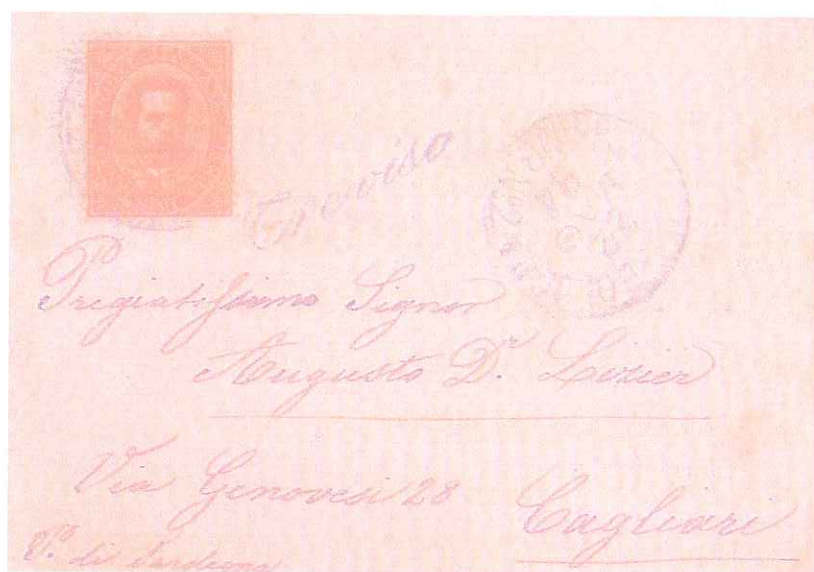 Treviso
Pregiatissimo Signor
Augusto D.r Lizier
Via Genovesi 28
Cagliari
di Sardegna